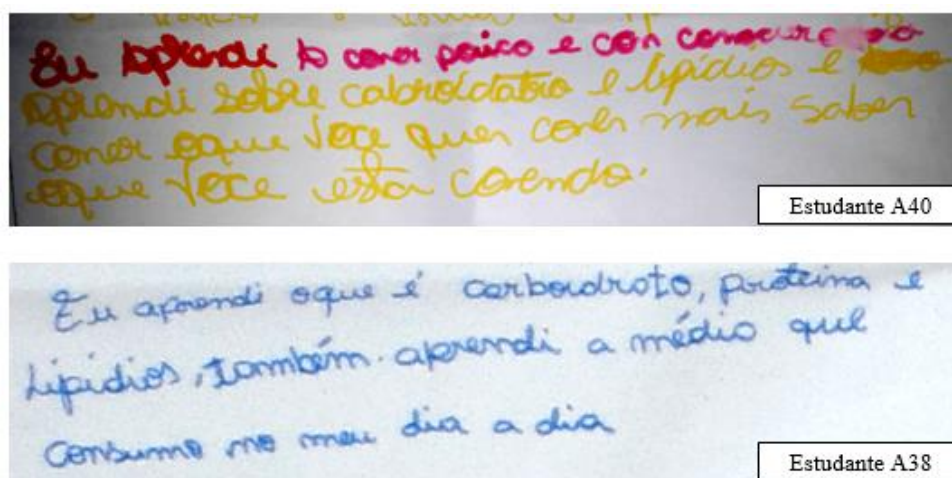 Eu Aprendi A comer pouco e com
Aprendi sobre cabroidatro e lipídios e
comer oque você quer comer mais saber
oque você esta comendo.
Estudante A40
Eu aprendi oque é carboidrato, proteína e
Lipídios, também aprendi a médio que
consumo no meu dia a dia
Estudante A38